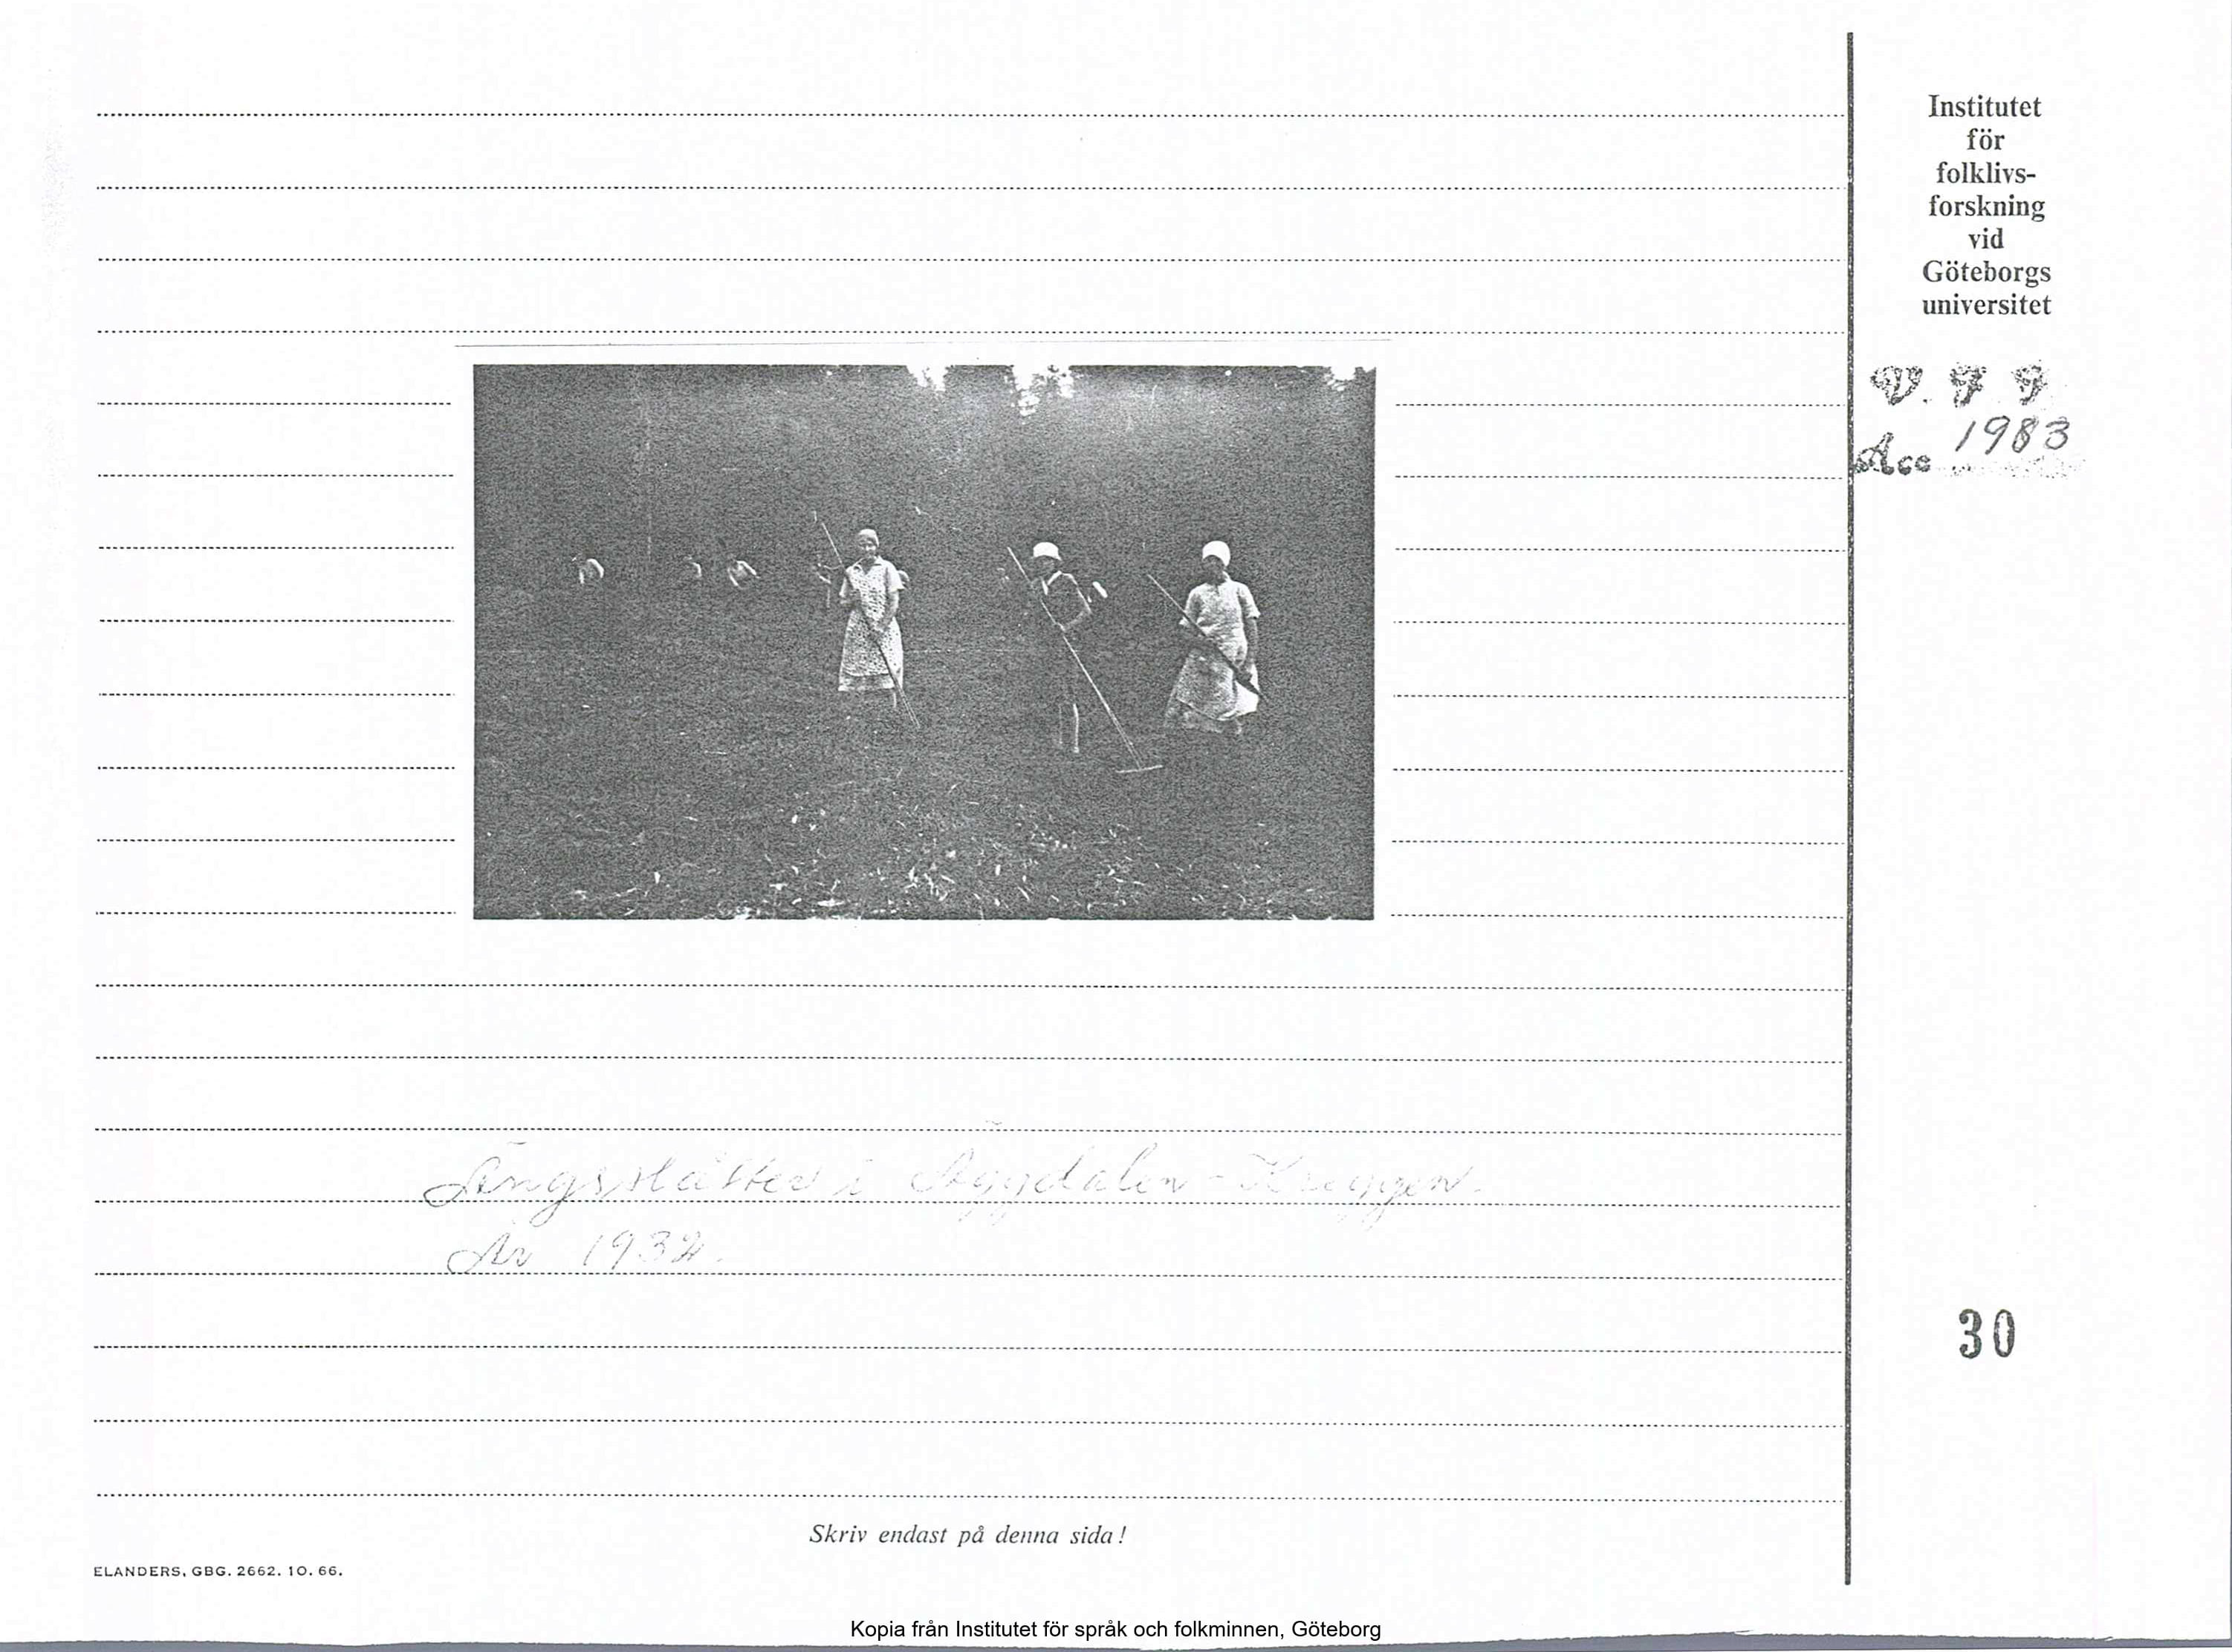 Institutet
för
folklivs-
forskning
vid
Göteborgs
universitet
V. F. F.
Acc 1983
Ängsslåtter i Äggdalen - Kreggen.
År 1932.
30
Skriv endast på denna sida!
ELANDERS, GBG. 2662. 10. 66.
Kopia från Institutet för språk och folkminnen, Göteborg